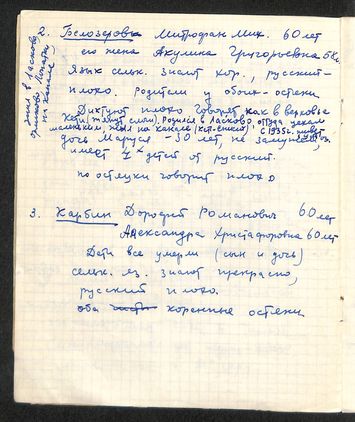 2. Белозеровъ Митрофан Мих. 60 лет
его жена Акулина Григорьевна 58 л.
Язык сельк. знают хор., русский -
плохо. Родители у обоих - остяки.
Диктуют плохо. Говорят как в верховье
Кети (тянут слова). Родился в Ласково, оттуда уехал
маленьким, жил на канале (Кет-Енисей). С 1935 г. живёт
дочь Маруся - 30 лет, не замужем,
имеет 4х детей от русских.
по остяцки говорит плохо
жил в Ласково,
на канале
3. Карбин Дорофей Романович 60 лет
Александра Христофоровна 60 лет
Дети все умерли (сын и дочь)
сельк. яз. знают прекрасно,
русский плохо.
оба коренные остяки